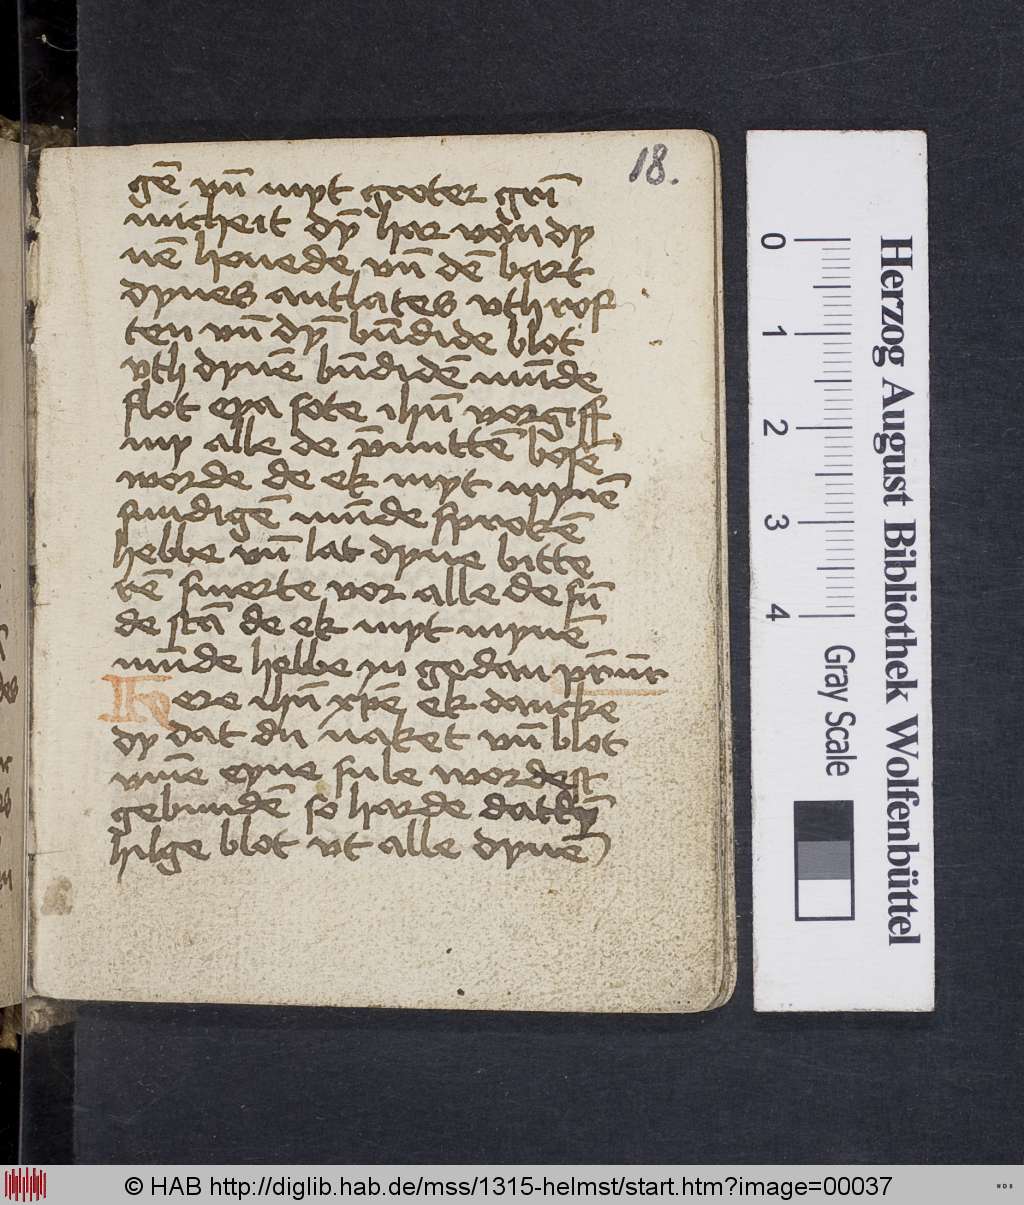 18.
gē vn̄ myt groter gri
micheit dȳ har van dy
nē houede vn̄ dē bart
dynes antlates vthrof
ten vn̄ dȳ bn̄dide blot
vth dynē bn̄didē mūde
flot eya sote ihū vorgiff
my alle de bose
worde de ek myt mynē
sundigē mūde sprokē
hebbe vn̄ lat dyne bitte
rē smerte vor alle de sū
de stā de ek myt mynē
mūde hebbe yn gedan pr̄ nr̄
Here ihū xp̄e ek dancke
dy dat du naket vn̄ blot
vm̄e eyne sule wordest
gebundē so harde dat dȳ
hilge blot vt alle dynē
0
1
2
3
4
Herzog August Bibliothek Wolfenbüttel
Gray Scale
© HAB http://diglib.hab.de/mss/1315-helmst/start.htm?image=00037